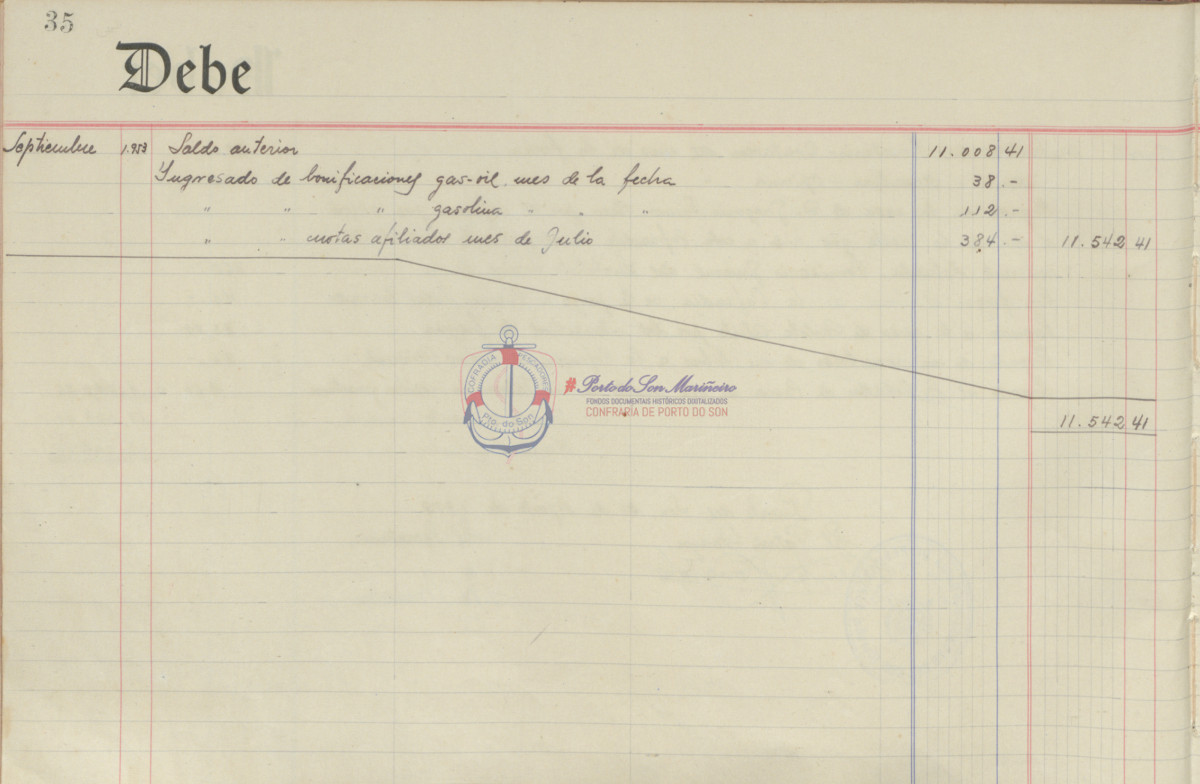 35
Debe
Septiembre 1.953 Saldo anterior 11.008 41
Ingresado de bonificaciones gas-oil mes de la fecha 38.-
" " " gasolina " " " 112.-
" " cuotas afiliados mes de Julio 384.- 11.542 41
11.542 41
COFRADIA PESCADORES
Pto. do Son
# Porto do Son Mariñeiro
FONDOS DOCUMENTAIS HISTÓRICOS DIXITALIZADOS
CONFRARÍA DE PORTO DO SON